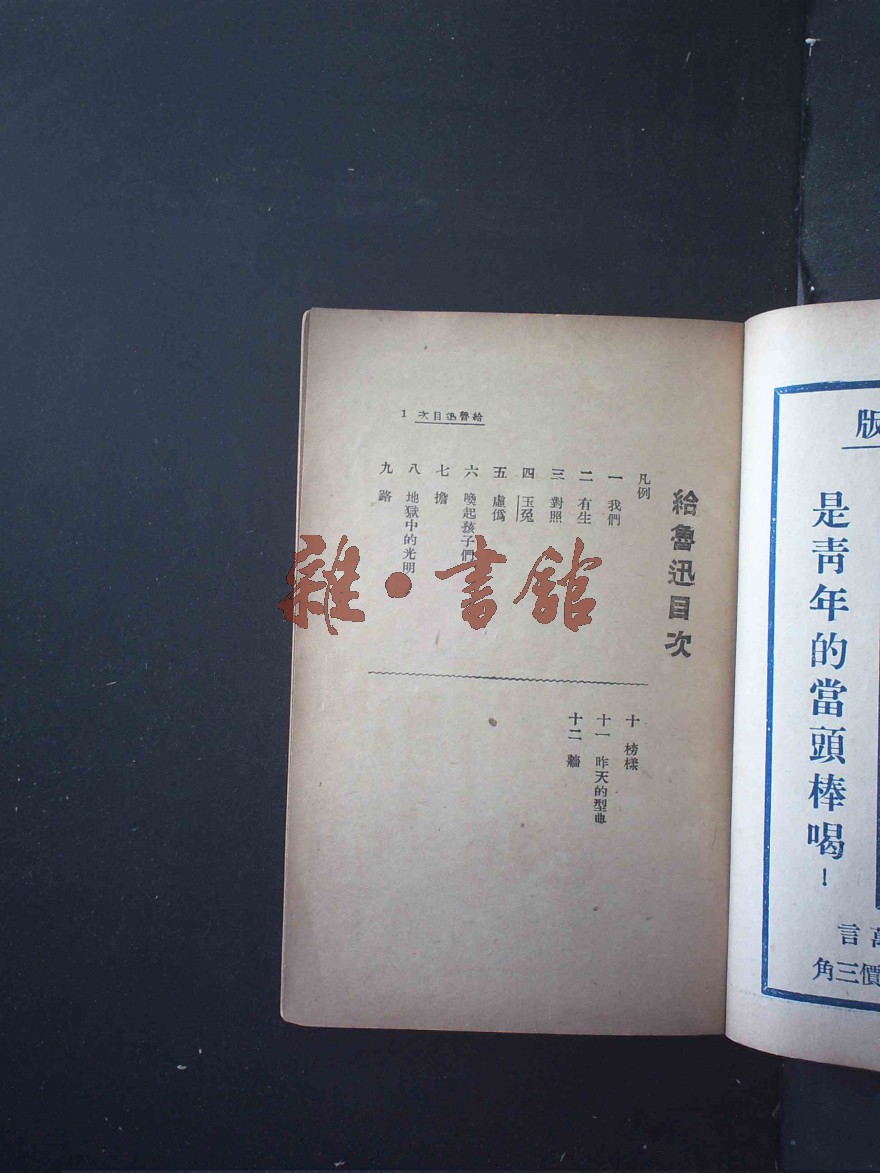 給魯迅目次 1
給魯迅目次
凡例
一 我們
二 有生
三 對照
四 玉兔
五 虛僞
六 喚起孩子們
七 擔
八 地獄中的光明
九 路
十 榜樣
十一 昨天的型典
十二 牆
版
是靑年的當頭棒喝！
言
價三角
雜·書館